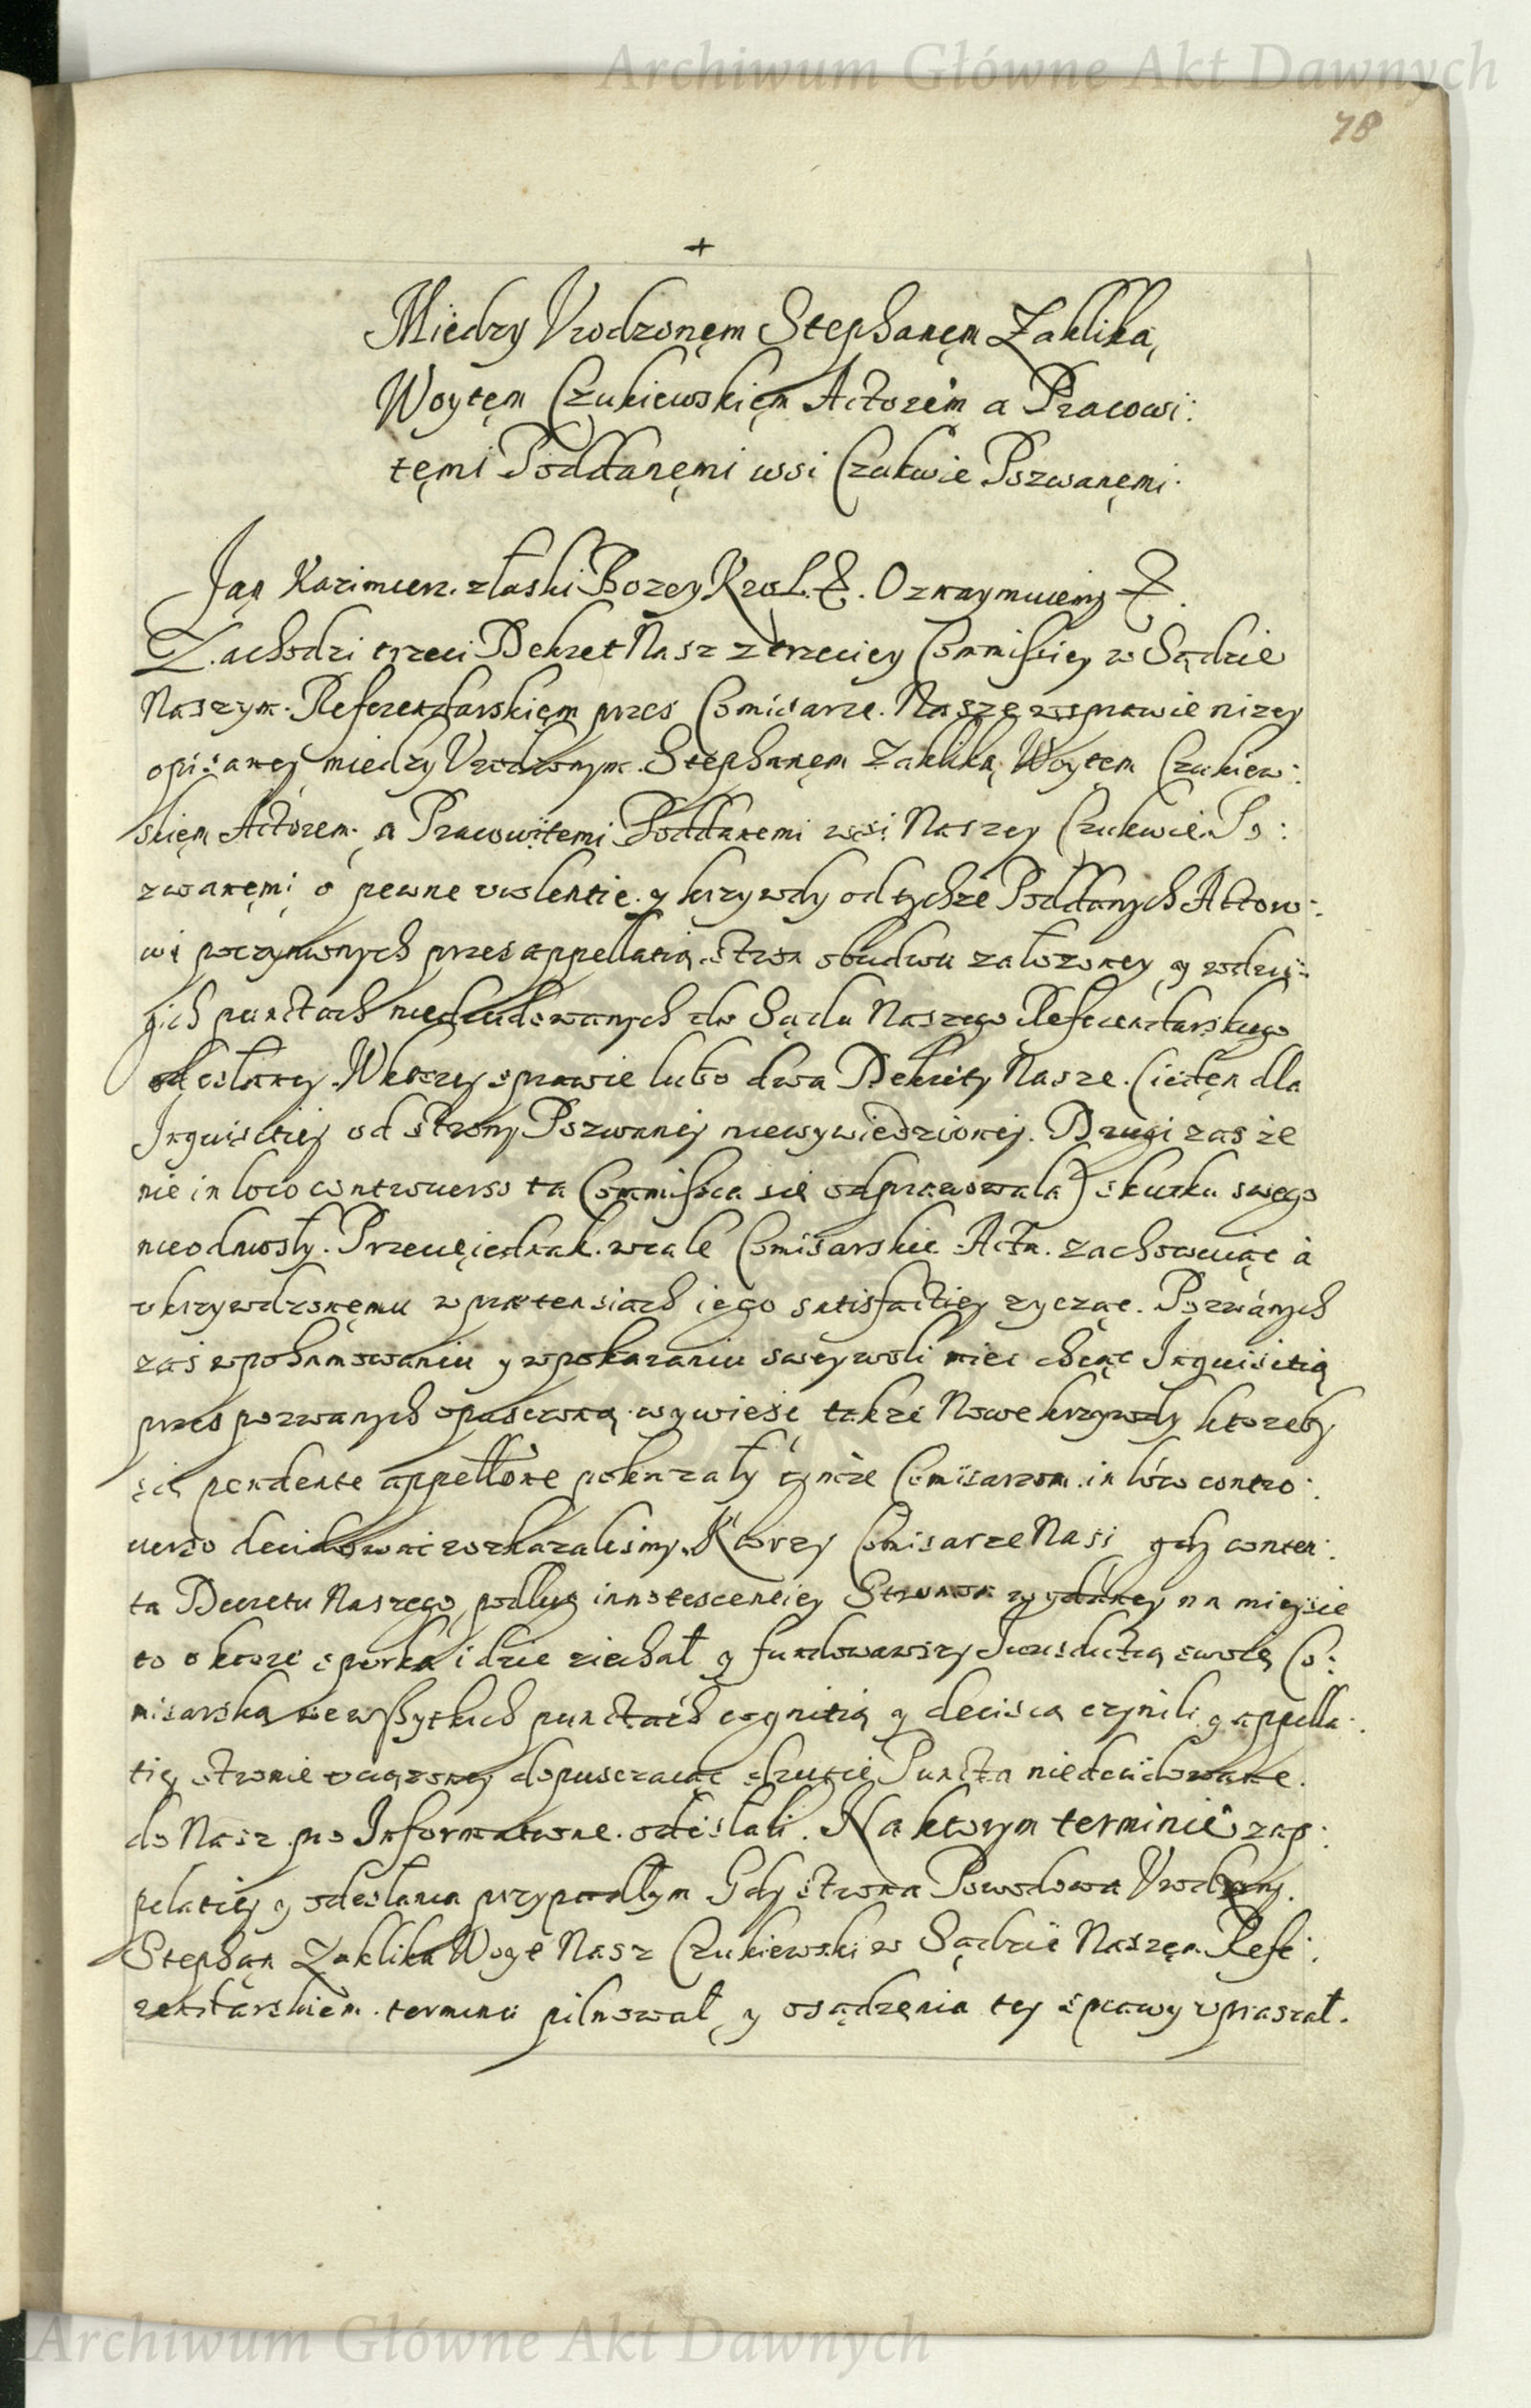 Archiwum Główne Akt Dawnych
78
+
Między Vrodzonęm Stephanęm Zakliką,
Woytęm Czukiewskięm Actorem a Pracowi:
tęmi Poddanęmi wsi Czukwie Pozwanęmi.
Jan Kazimierz. z łaski Bozey Krol. &. Oznaymuiemy &.
Zachodzi trzeci Dekret Nasz z trzeciey Commissiey w Sądzie
Naszym. Referendarskięm przes Comisarze. Nasze w sprawie nizey
opisaney między Vrodzonym. Stephanęm Zakliką Woytem Czukiew:
skięm Actorem. a Pracowitemi Poddanemi wsi Naszey Czukwie Po:
zwanęmi o pewne violentie. y krzywdy od tychże Poddanych Actoro:
wi poczynionych przes appellatią. Stron obudwu założoney y w dru:
gich punctach niedecidowanych do Sądu Naszego Referendarskiego
odesłaney. W ktorey sprawie lubo dwa Dekrety Nasze. (ieden dla
Inquisitiey od Strony Pozwaney niewywiedzioney. Drugi zas że
nie in loco controuerso ta Commissia się odprawowała) skutku swego
nieodniosły. Przecię iednak. wcale Comisarskie Acta. zachowuiąc à
vkrzywdzonęmu w praetensiach iego satisfactiey zycząc. Pozwanych
zaś w pohamowaniu y w pokazaniu swey woli miec chcąc Inquisitią
przes pozwanych opusczoną wywieść także Nowe krzywdy ktoreby
się pendente appellõne pokazały tymże Comisarzom. in loco contro:
uerso decidowac rozkazalismy. Ktorzy Comisarze Nasi gdy conten:
ta Decretu Naszego, podług innotescentiey Stronom wydaney na mieysce
to o ktore sporka idzie ziechał y fundowawszy Jurisdictią swoię Co:
misarską we wszytkich punctach cognitią y decisią czynili y appella:
tię stronie vciązoney dopusczaiąc drugie Puncta niedecidowane.
do Nasz. pro Informatione. odesłali. Na ktorym terminie z ap:
pelatiey y odesłania przypadłym Gdy strona Powodowa Vrodzony.
Stephan Zaklika Woyt Nasz Czukiewski w Sądzie Naszęm. Refe:
rendarskiem. terminu pilnował, y osądzęnia tey sprawy vpraszał.
Archiwum Główne Akt Dawnych